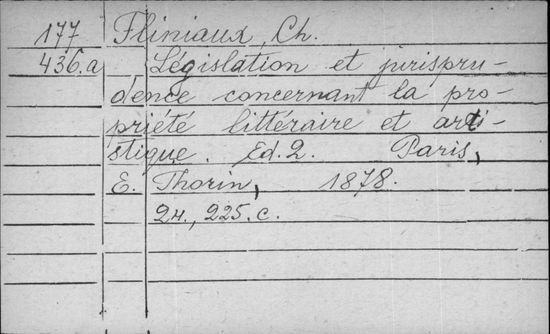 177 Fliniaux, Ch.
436.a Législation et jurispru-
dence concernant la pro-
priété littéraire et arti-
stique. Ed. 2. Paris,
E. Thorin, 1878.
24., 225.c.